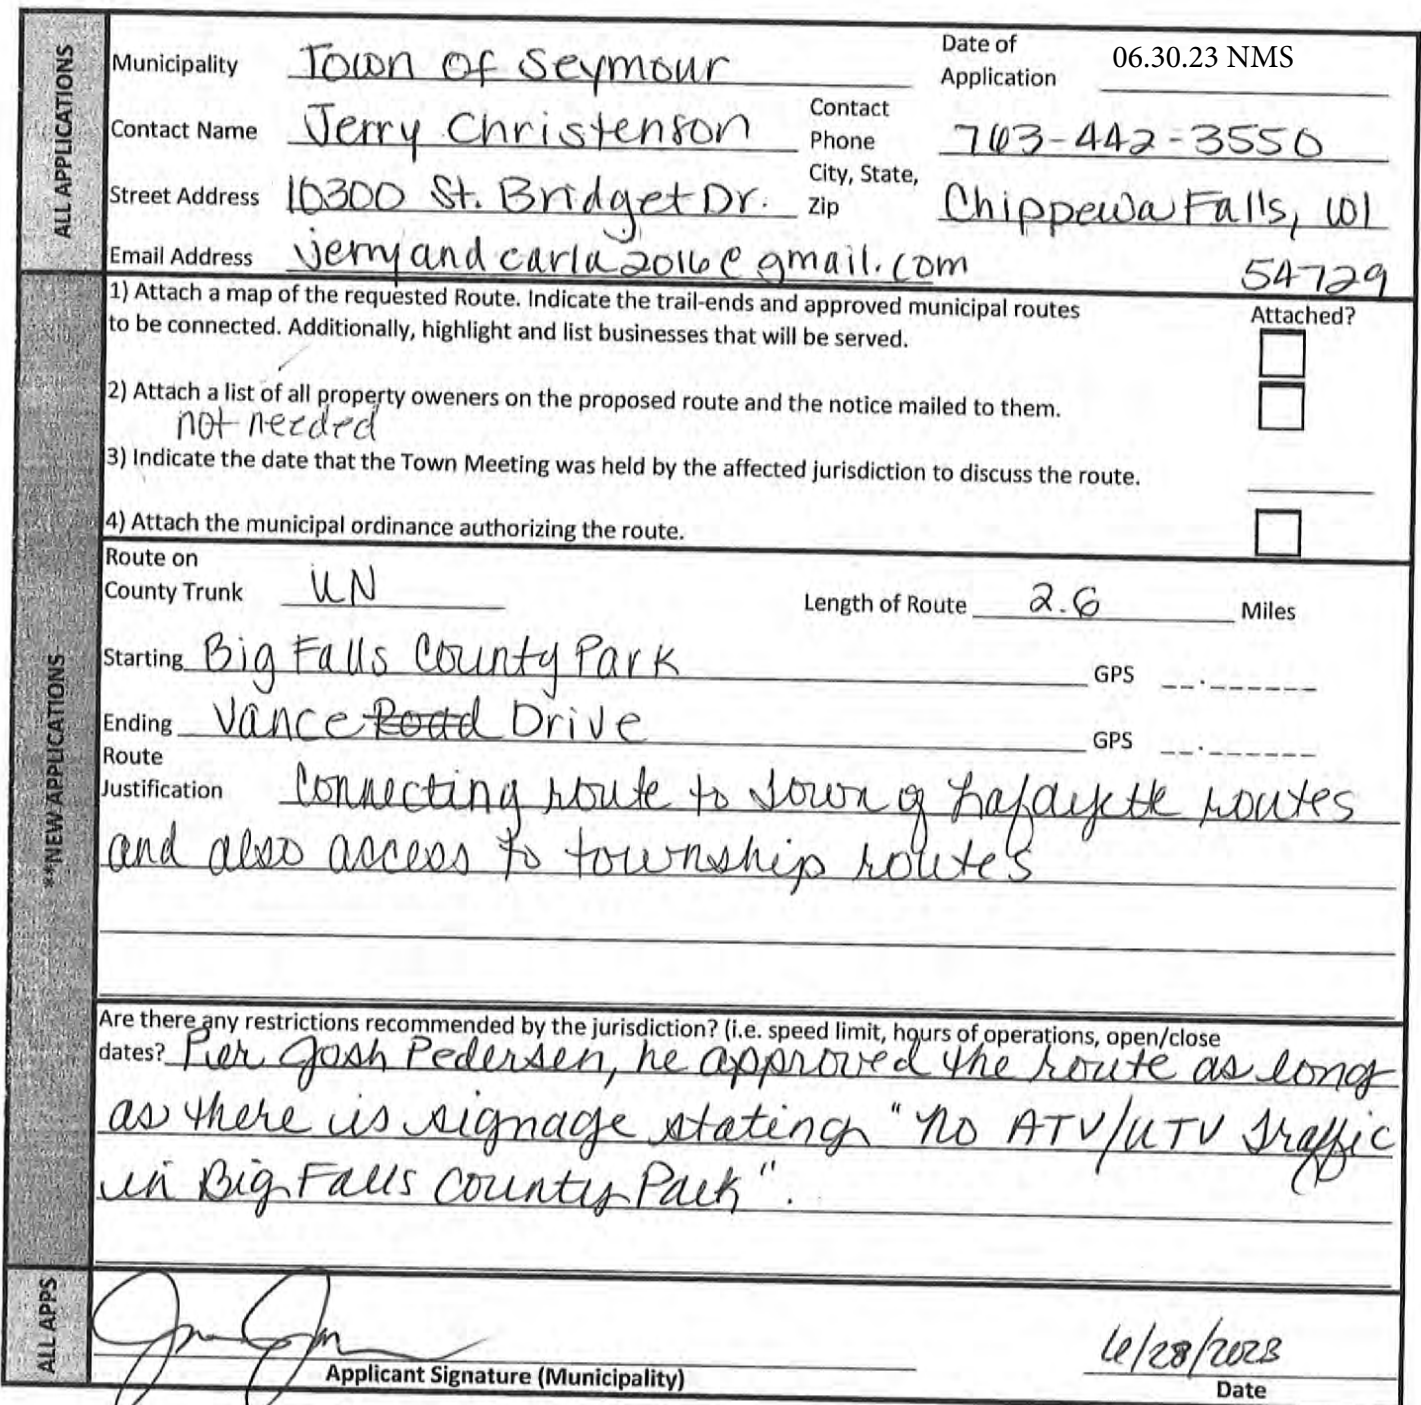 ALL APPLICATIONS
Municipality Town of Seymour Date of Application 06.30.23 NMS
Contact Name Jerry Christenson Contact Phone 763-442-3550
Street Address 16300 St. Bridget Dr. City, State, Zip Chippewa Falls, WI
Email Address jerryandcarla2016@gmail.com 54729
**NEW APPLICATIONS
1) Attach a map of the requested Route. Indicate the trail-ends and approved municipal routes Attached?
to be connected. Additionally, highlight and list businesses that will be served.
2) Attach a list of all property oweners on the proposed route and the notice mailed to them.
not needed
3) Indicate the date that the Town Meeting was held by the affected jurisdiction to discuss the route.
4) Attach the municipal ordinance authorizing the route.
Route on
County Trunk UN Length of Route 2.6 Miles
Starting Big Falls County Park GPS __.______
Ending Vance Road Drive GPS __.______
Route
Justification Connecting route to Town of Lafayette routes
and also access to township routes
Are there any restrictions recommended by the jurisdiction? (i.e. speed limit, hours of operations, open/close
dates? Per Josh Pedersen, he approved the route as long
as there is signage stating "No ATV/UTV Traffic
in Big Falls County Park".
ALL APPS
Applicant Signature (Municipality) 6/28/2023
Date